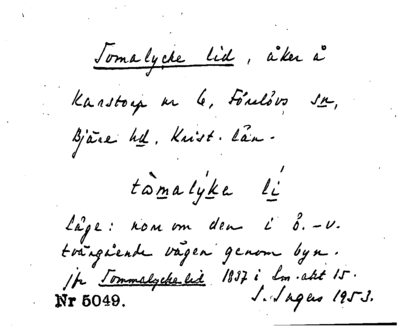 Tomalycke lid, åker å
Karstorp nr 6, Förslövs sn,
Bjäre hd. Krist. län.
tòmalýka lí
Läge: norr om den i ö.-v.
tvärgående vägen genom byn.
jfr Tommalyckelid 1837 i Lm. akt 15.
Nr 5049. S. Ingers 1953.